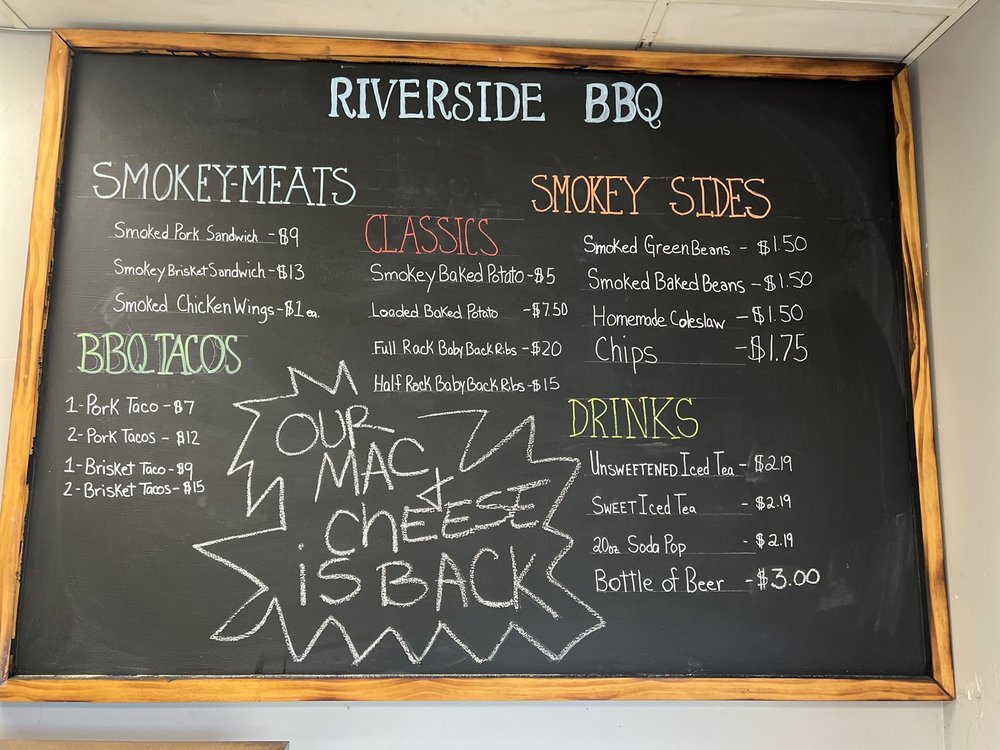 RIVERSIDE BBQ
SMOKEY-MEATS
Smoked Pork Sandwich - $9
Smokey Brisket Sandwich - $13
Smoked Chicken Wings - $1 ea.
BBQ TACOS
1 - Pork Taco - $7
2 - Pork Tacos - $12
1 - Brisket Taco - $9
2 - Brisket Tacos - $15
CLASSICS
Smokey Baked Potato - $5
Loaded Baked Potato - $7.50
Full Rack Baby Back Ribs - $20
Half Rack Baby Back Ribs - $15
OUR
MAC &
CHEESE
iS BACK
SMOKEY SIDES
Smoked Green Beans - $1.50
Smoked Baked Beans - $1.50
Homemade Coleslaw - $1.50
Chips - $1.75
DRINKS
UNSWEETENED Iced Tea - $2.19
SWEET Iced Tea - $2.19
20oz Soda Pop - $2.19
Bottle of Beer - $3.00